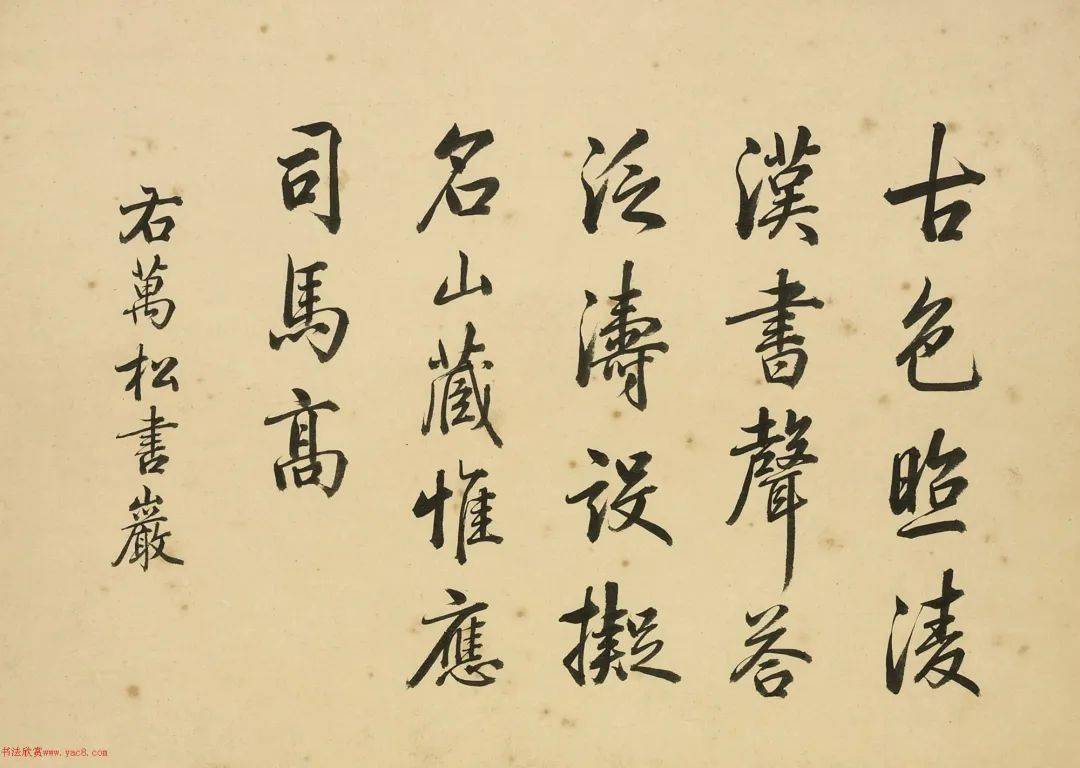 古色照凌
漢書聲答
泛濤設擬
名山藏惟應
司馬高
右萬松書巖
书法欣赏www.yac8.com